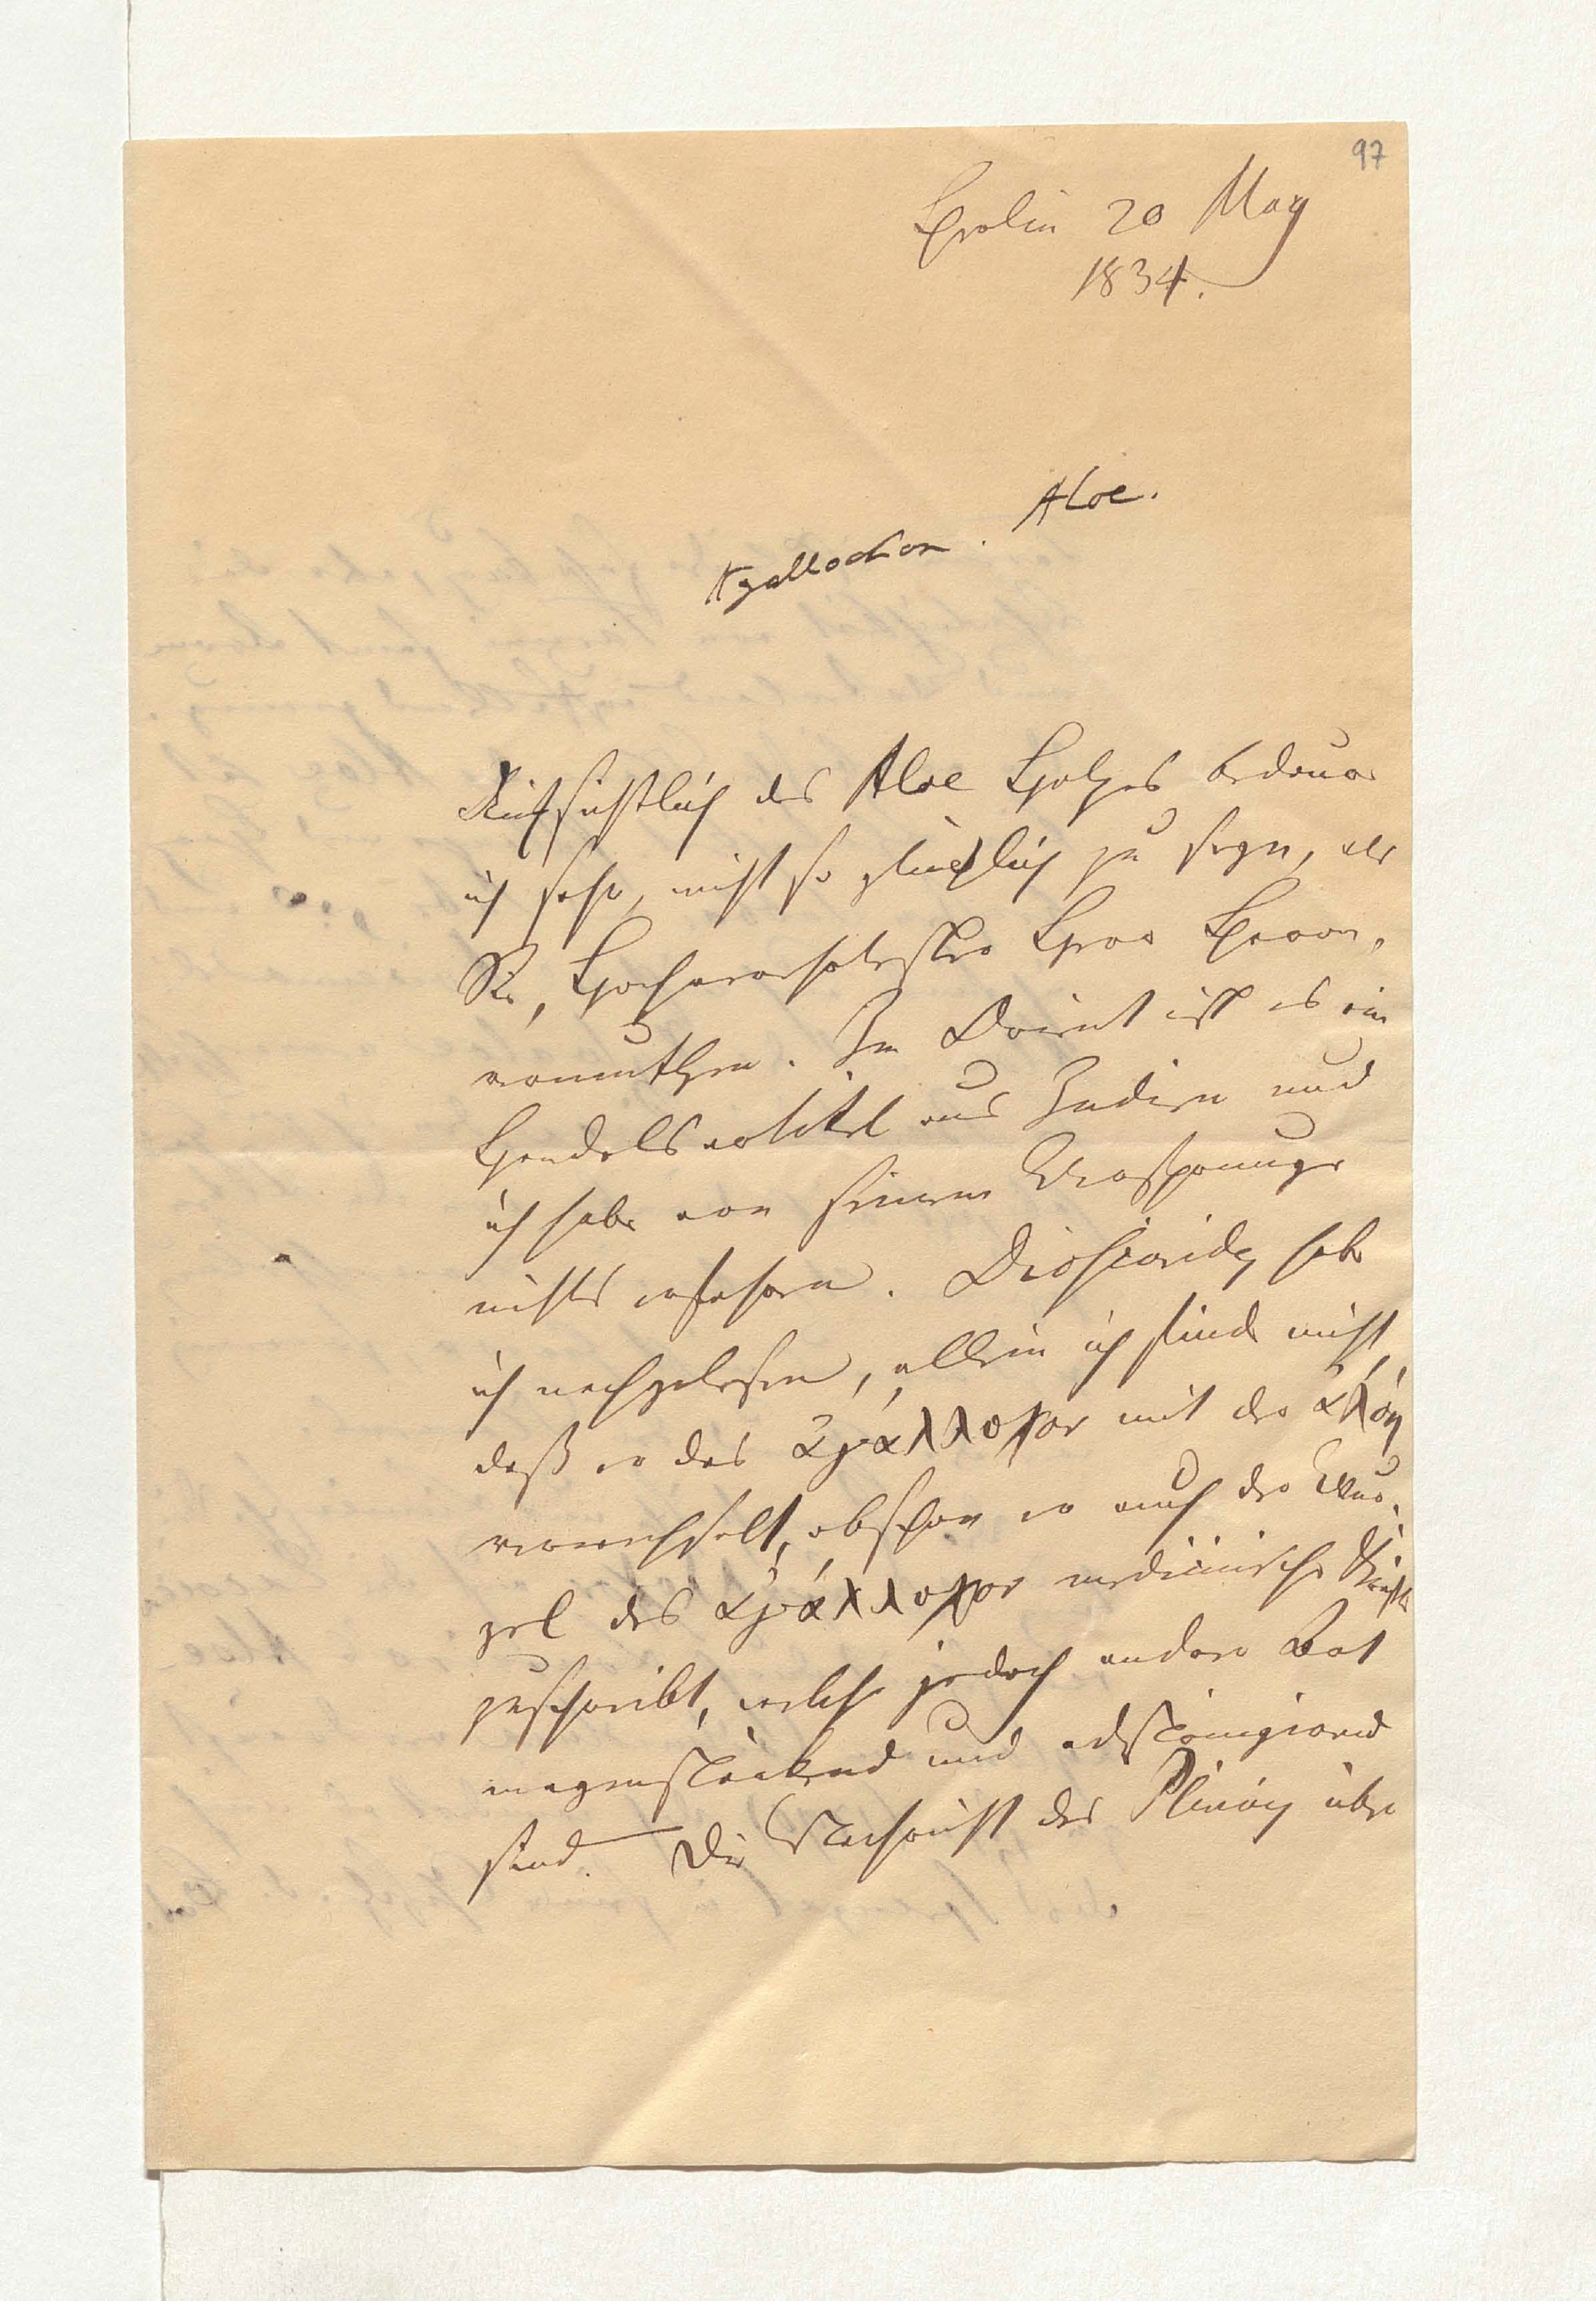 97
Berlin 20 May
1834.
Aloe.
Agallochon.
Rücksichtlich des Aloe Holzes bedaure
ich sehr, nicht so glücklich zu seyn, als
Sie, Hochverehrtester Herr Baron,
vermuthen. Im Orient ist es ein
Handelsartikel aus Indien und
ich habe von seinem Ursprunge
nichts erfahren. Dioscorides habe
ich nachgelesen, allein ich finde nicht,
daß er das ἀγάλλοχον mit der ἀλόη
verwechselt, obschon er auch der Wur-
zel des ἀγάλλοχον medicinische Kräfte
zuschreibt, welche jedoch anderer Art
magenstärkend und adstringirend
sind. Die Nachricht des Plinius über